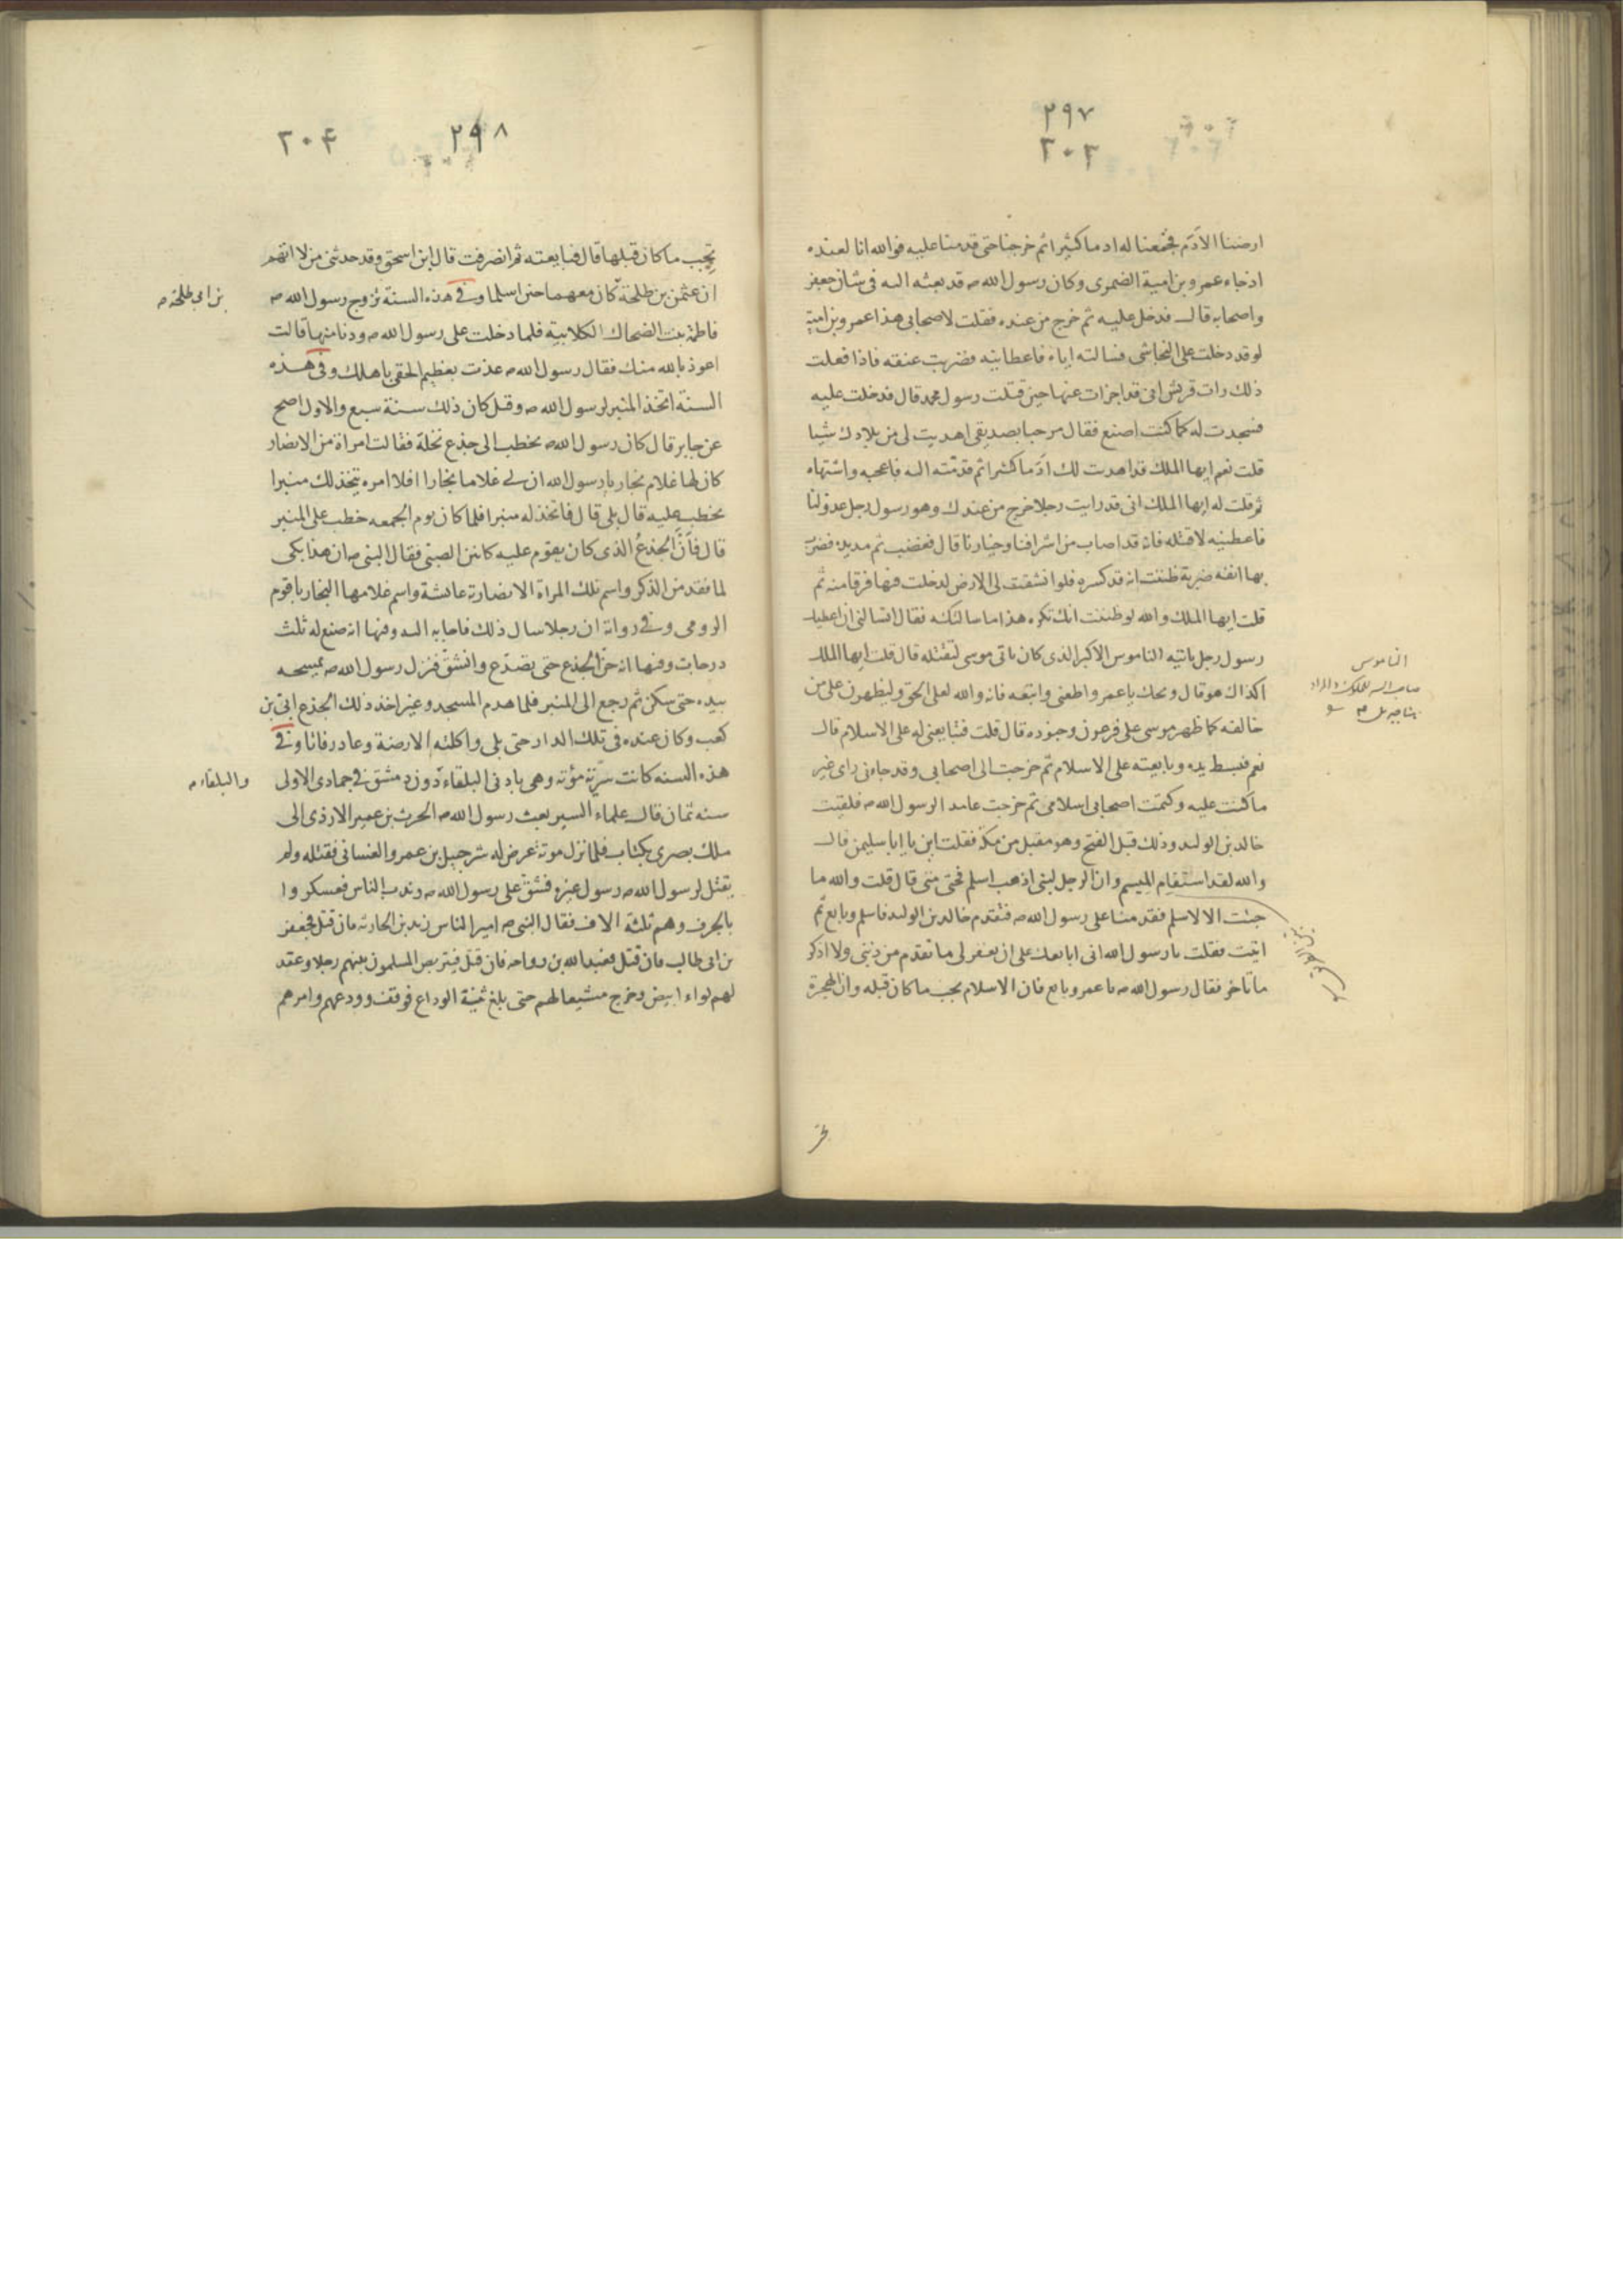 ٢٩٧
٣٠٣
ارضنا الأدم فجمعنا له ادما كثيرا ثم خرجنا حتى قدمنا عليه فوالله انا لعنده
اذ جاء عمرو بن امية الضمرى وكان رسول الله ص قد بعثه اليه فى شان جعفر
واصحابه قال فدخل عليه ثم خرج من عنده فقلت لاصحابى هذا عمرو بن امية
لو قد دخلت على النجاشى فسالته اياه فاعطانيه فضربت عنقه فاذا فعلت
ذلك رات قريش انى قد اجزات عنها حين قتلت رسول محمد قال فدخلت عليه
فسجدت له كما كنت اصنع فقال مرحبا بصديقى اهديت لى من بلادك شيا
قلت نعم ايها الملك قد اهديت لك ادما كثيرا ثم قدمته اليه فاعجبه واشتهاه
ثم قلت له ايها الملك انى قد رايت رجلا خرج من عندك وهو رسول رجل عدو لنا
فاعطنيه لاقتله فانه قد اصاب من اشرافنا وخيارنا قال فغضب ثم مد يده فضرب
بها انفه ضربة ظننت انه قد كسره فلو انشقت لى الارض لدخلت فيها فرقا منه ثم
قلت ايها الملك والله لو ظننت انك تكره هذا ما سالتكه فقال اتسالنى ان اعطيك
رسول رجل ياتيه الناموس الاكبر الذى كان ياتى موسى لتقتله قال قلت ايها الملك
اكذاك هو قال ويحك يا عمرو اطعنى واتبعه فانه والله لعلى الحق وليظهرن على من
خالفه كما ظهر موسى على فرعون وجنوده قال قلت فتبايعنى له على الاسلام قال
نعم فبسط يده وبايعته على الاسلام ثم خرجت الى اصحابى وقد جاءنى راى غير
ما كنت عليه وكتمت اصحابى اسلامى ثم خرجت عامدا لرسول الله ص فلقيت
خالد بن الوليد وذلك قبل الفتح وهو مقبل من مكة فقلت اين يا ابا سليمن قال
والله لقد استقام الميسم وان الرجل لنبى اذهب اسلم فحتى متى قال قلت والله ما
جئت الا لاسلم فقدمنا على رسول الله ص فتقدم خالد بن الوليد فاسلم وبايع ثم
اتيت فقلت يا رسول الله انى ابايعك على ان يغفر لى ما تقدم من ذنبى ولا اذكر
ما تاخر فقال رسول الله ص يا عمرو بايع فان الاسلام يجب ما كان قبله وان الهجرة
الناموس
صاحب السر للملوك والمراد
هنا جبريل
٢٩٨
٣٠۴
تجب ما كان قبلها قال فبايعته ثم انصرفت قال ابن اسحق وقد حدثنى من لا اتهم
ان عثمن بن طلحة كان معهما حين اسلما وفى هذه السنة تزوج رسول الله ص
بن ابى طلحة
فاطمة بنت الضحاك الكلابية فلما دخلت على رسول الله ص ودنا منها قالت
اعوذ بالله منك فقال رسول الله ص عذت بعظيم الحقى باهلك وفى هذه
السنة اتخذ المنبر لرسول الله ص وقيل كان ذلك سنة سبع والاول اصح
عن جابر قال كان رسول الله ص يخطب الى جذع نخلة فقالت امراة من الانصار
كان لها غلام نجار يا رسول الله ان لى غلاما نجارا افلا امره يتخذ لك منبرا
تخطب عليه قال بلى قال فاتخذ له منبرا فلما كان يوم الجمعه خطب على المنبر
قال فأنّ الجذعُ الذى كان يقوم عليه كانين الصبى فقال النبى ص ان هذا بكى
لما فقد من الذكر واسم تلك المراة الانصارية عائشة واسم غلامها النجار باقوم
الرومى وفى رواية ان رجلا سال ذلك فاجابه اليه وفيها انه صنع له ثلث
درجات وفيها انه حنّ الجذع حتى تصدّع وانشقّ فنزل رسول الله ص يمسحه
بيده حتى سكن ثم رجع الى المنبر فلما هدم المسجد وغير اخذ ذلك الجذع ابىّ بن
كعب وكان عنده فى تلك الدار حتى بلى واكلته الارضة وعاد رفاتا وفى
هذه السنه كانت سريّة مؤتة وهى بادنى البلقاء دون دمشق فى جمادى الاولى
والبلقاء
سنه ثمان قال علماء السير بعث رسول الله ص الحرث بن عمير الازدى الى
ملك بصرى بكتاب فلما نزل موتة عرض له شرحبيل بن عمرو الغسانى فقتله ولم
يقتل لرسول الله ص رسول غيره فشقّ على رسول الله ص وندب الناس فعسكروا
بالجرف وهم ثلثة الاف فقال النبى ص امير الناس زيد بن الحارثه فان قتل فجعفر
بن ابى طالب فان قتل فعبد الله بن رواحه فان قتل فيرتض المسلمون بينهم رجلا وعقد
لهم لواء ابيض وخرج مشيعا لهم حتى بلغ ثنية الوداع فوقف وودعهم وامرهم